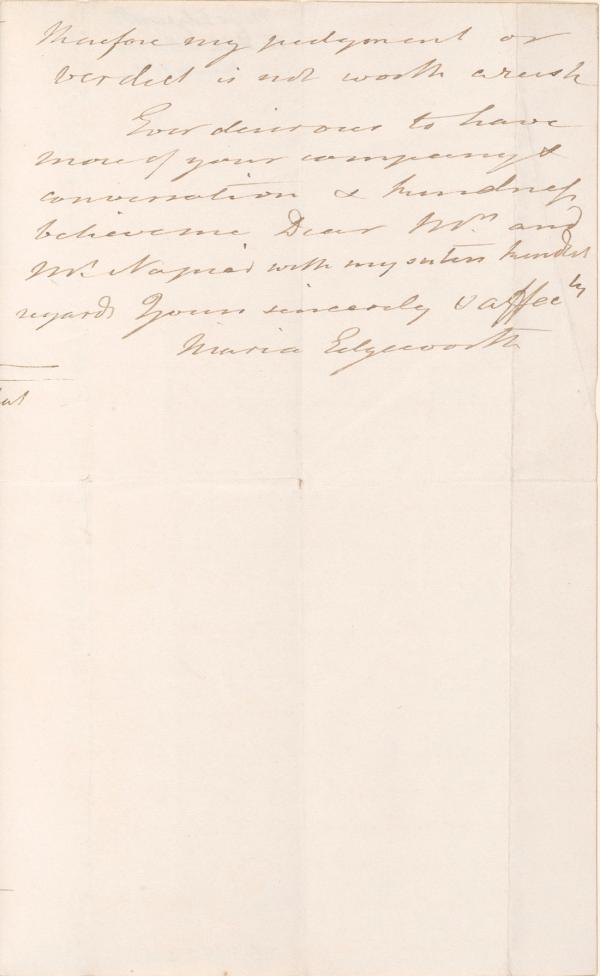 Therefore my judgment or
verdict is not worth a rush
Ever desirous to have
more of your company &
conversation & kindness
believe me Dear Mrs and
Mr. Napier with my sisters kindest
regards Yours sincerely & affecly
Maria Edgeworth